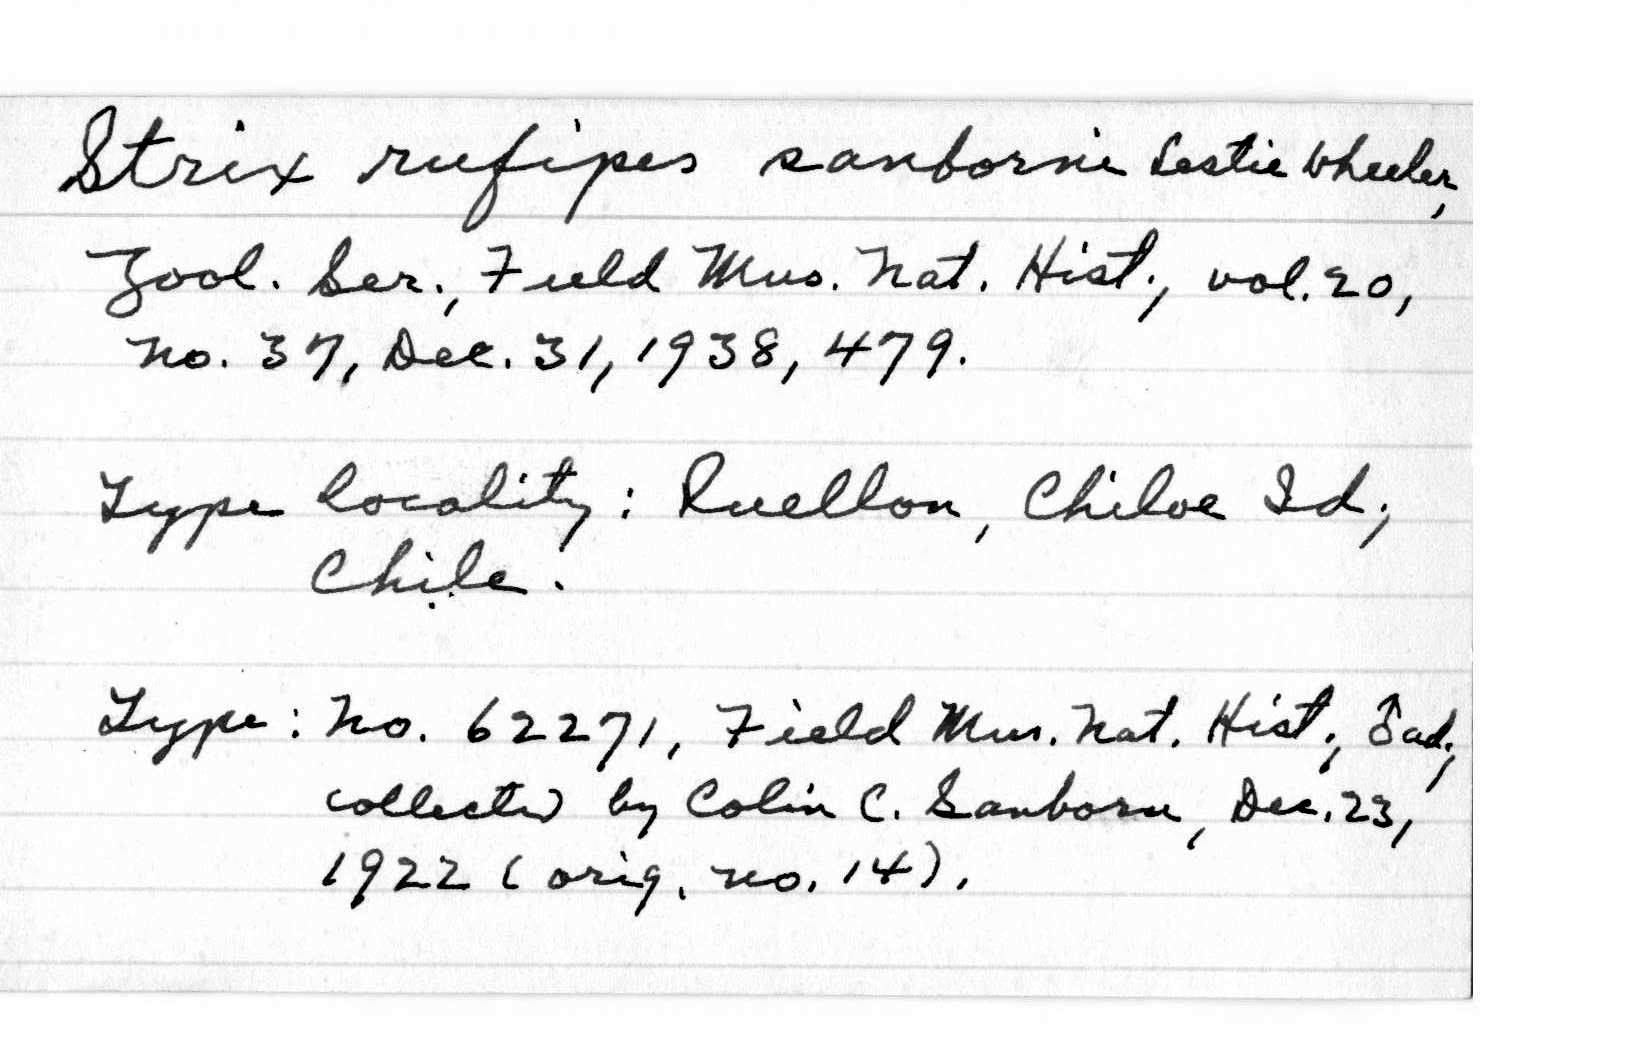 Strix rufipes sanborni Leslie Wheeler,
Zool. Ser., Field Mus. Nat. Hist., vol. 20,
no. 37, Dec. 31, 1938, 479.
Type locality: Quellon, Chiloe Id.,
Chile.
Type: No. 62271, Field Mus. Nat. Hist., ♂ ad.,
collected by Colin C. Sanborn, Dec. 23,
1922 (orig. no. 14).